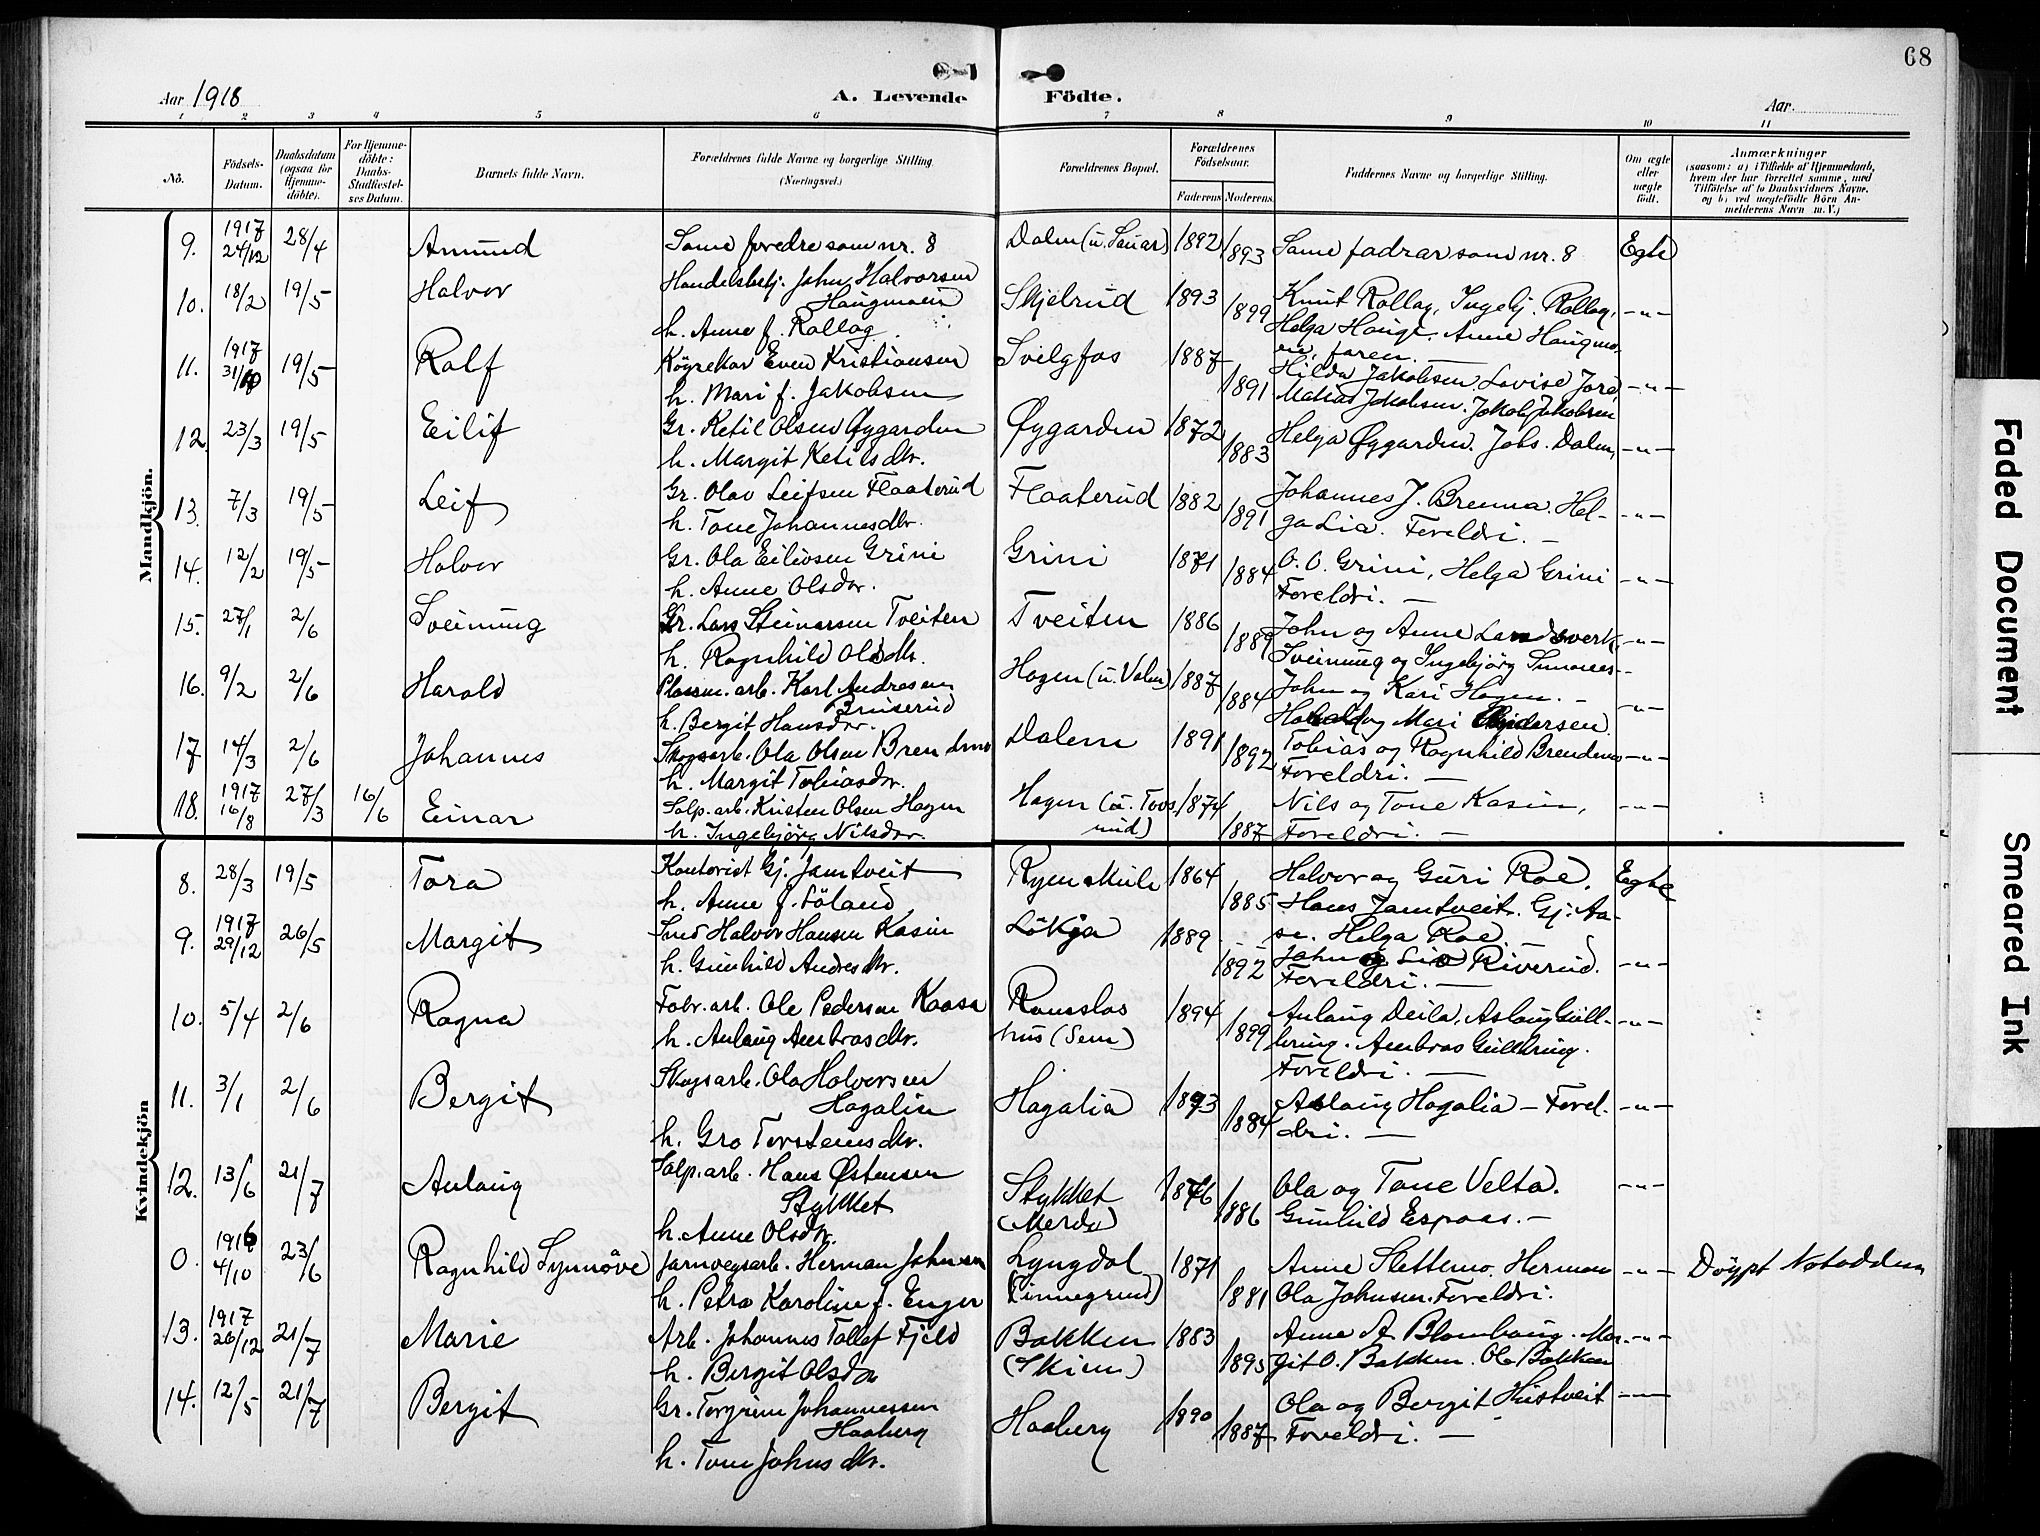 68
Aar 1918
A. Levende Födte.
Aar.
1 2 3 4 5 6 7 8 9 10 11
No.
Födsels-Datum.
Daabsdatum (ogsaa for Hjemme-döbte).
For Hjemme-döbte: Daabs-Stadfæstel-ses Datum.
Barnets fulde Navn.
Forældrenes fulde Navne og borgerlige Stilling. (Næringsvei.)
Forældrenes Bopæl.
Forældrenes Födselsaar.
Faderens Moderens
Faddernes Navne og borgerlige Stilling.
Om ægte eller uægte födt.
Anmærkninger
(saasom: a) i Tilfælde af Hjemmedaab, hvem der har forrettet samme, med Tilföielse af to Daabsvidners Navne. og b) ved uægtefödte Börn An-melderens Navn m. V.)
Mandkjön.
9. 1917 24/12 28/4 Amund Same foreldre som nr. 8 Dalen (u. Sauar) 1892 1893 Same fadrar som nr. 8 Egte
10. 18/2 19/5 Halvor Handelsbetj. John Halvorsen Haugmoen
h. Anne f. Rollag Skjelrud 1893 1899 Knut Rollag, Ingebj. Rollag, Helga Hauge. Anne Haugmoen, faren. — -"-
11. 1917 19/5 Ralf Köyrekar Even Kristiansen
h. Mari f. Jakobsen Svelgfos 1887 1891 Hilda Jakobsen. Lovise Jore, Matias Jakobsen. Jakob Jakobsen -"-
12. 23/3 19/5 Eilif Gr. Ketil Olsen Øygarden
h. Margit Ketilsdtr. Øygarden 1872 1883 Helga Øygarden. Johs. Dalen, -"-
13. 7/3 19/5 Leif Gr. Olav Leifsen Flaaterud
h. Tone Johannesdtr. Flaaterud 1882 1891 Johannes J. Brenna. Helga Lia. Foreldri. — -"-
14. 12/2 19/5 Halvor Gr. Ola Eilivsen Grini
h. Anne Olsdtr. Grini 1871 1884 O. O. Grini, Helga Grini Foreldri. — -"-
15. 27/1 2/6 Sveinung Gr. Lars Steinarsen Tveiten
h. Ragnhild Olsdtr. Tveiten 1886 1889 John og Anne Landsverk, Sveinung og Ingebjörg -"-
16. 9/2 2/6 Harald Plassm. arb. Karl Andresen Bruserud
h. Bergit Hansdtr. Hagen (u. Valen) 1887 1884 John og Kari Hagen. — Harald og Mari Andersen. -"-
17 14/3 2/6 Johannes Skogsarb. Ola Olsen Brendmo
h. Margit Tobiasdtr. Dalen 1891 1892 Tobias og Ragnhild Brendmo Foreldri. — -"-
18. 1917 16/8 27/3 16/6 Einar Salp. arb. Kristen Olsen Hagen
h. Ingebjörg Nilsdtr. Hagen 1874 1887 Nils og Tone Kasin, Foreldri. — -"-
Kvindekjön
8. 28/3 19/5 Tora Kontorist Gj. Jamtveit
h. Anne f. Söland Ryen skule 1864 1885 Halvor og Guri Roe. Hans Jamtveit. Gj. Aase. Helga Roe. — Egte
9. 1917 29/12 26/5 Margit Smed Halvor Hansen Kasin
h. Gunhild Andresdtr. Lökja 1889 1892 John og Riverud. Foreldri. — -"-
10. 5/4 2/6 Ragna Fabr. arb. Ole Pedersen Kaasa
h. Aslaug Ambrosdtr. Ramslashus (Sem) 1894 1899 Aslaug Deila. Aslaug Gullbring. Ambros Gullbring. Foreldri. — -"-
11. 3/1 2/6 Bergit Skogsarb. Ola Halvorsen Hagalia
h. Gro Torsteinsdtr. Hagalia 1893 1884 Aslaug Hagalia — Foreldri. — -"-
12. 13/6 21/7 Aslaug Salp. arb. Hans Østensen Stykket
h. Anne Olsdtr. Stykket (Merde) 1876 1886 Ola og Tone Velta. Gunhild Espaas. — -"-
0. 1916 4/10 23/6 Ragnhild Synnöve Jarnvegsarb. Herman Johnsen
h. Petra Karoline f. Enger Lyngdal 1871 1881 Anne Slettemo. Herman Ola Johnsen. Foreldri. -"- Döypt Notodden
13. 1917 26/12 21/7 Marie Arb. Johannes Tallef Fjeld
h. Bergit Olsdtr Bakken (Skien) 1883 1895 Anne A. Blombaug. Margit O. Bakken. Ola Bakken -"-
14. 12/5 21/7 Bergit Gr. Torgrim Johannessen Haaberg
h. Tone Johnsdtr. Haaberg 1890 1887 Ola og Bergit Hustveit Foreldri. —
Faded Document
Smeared Ink